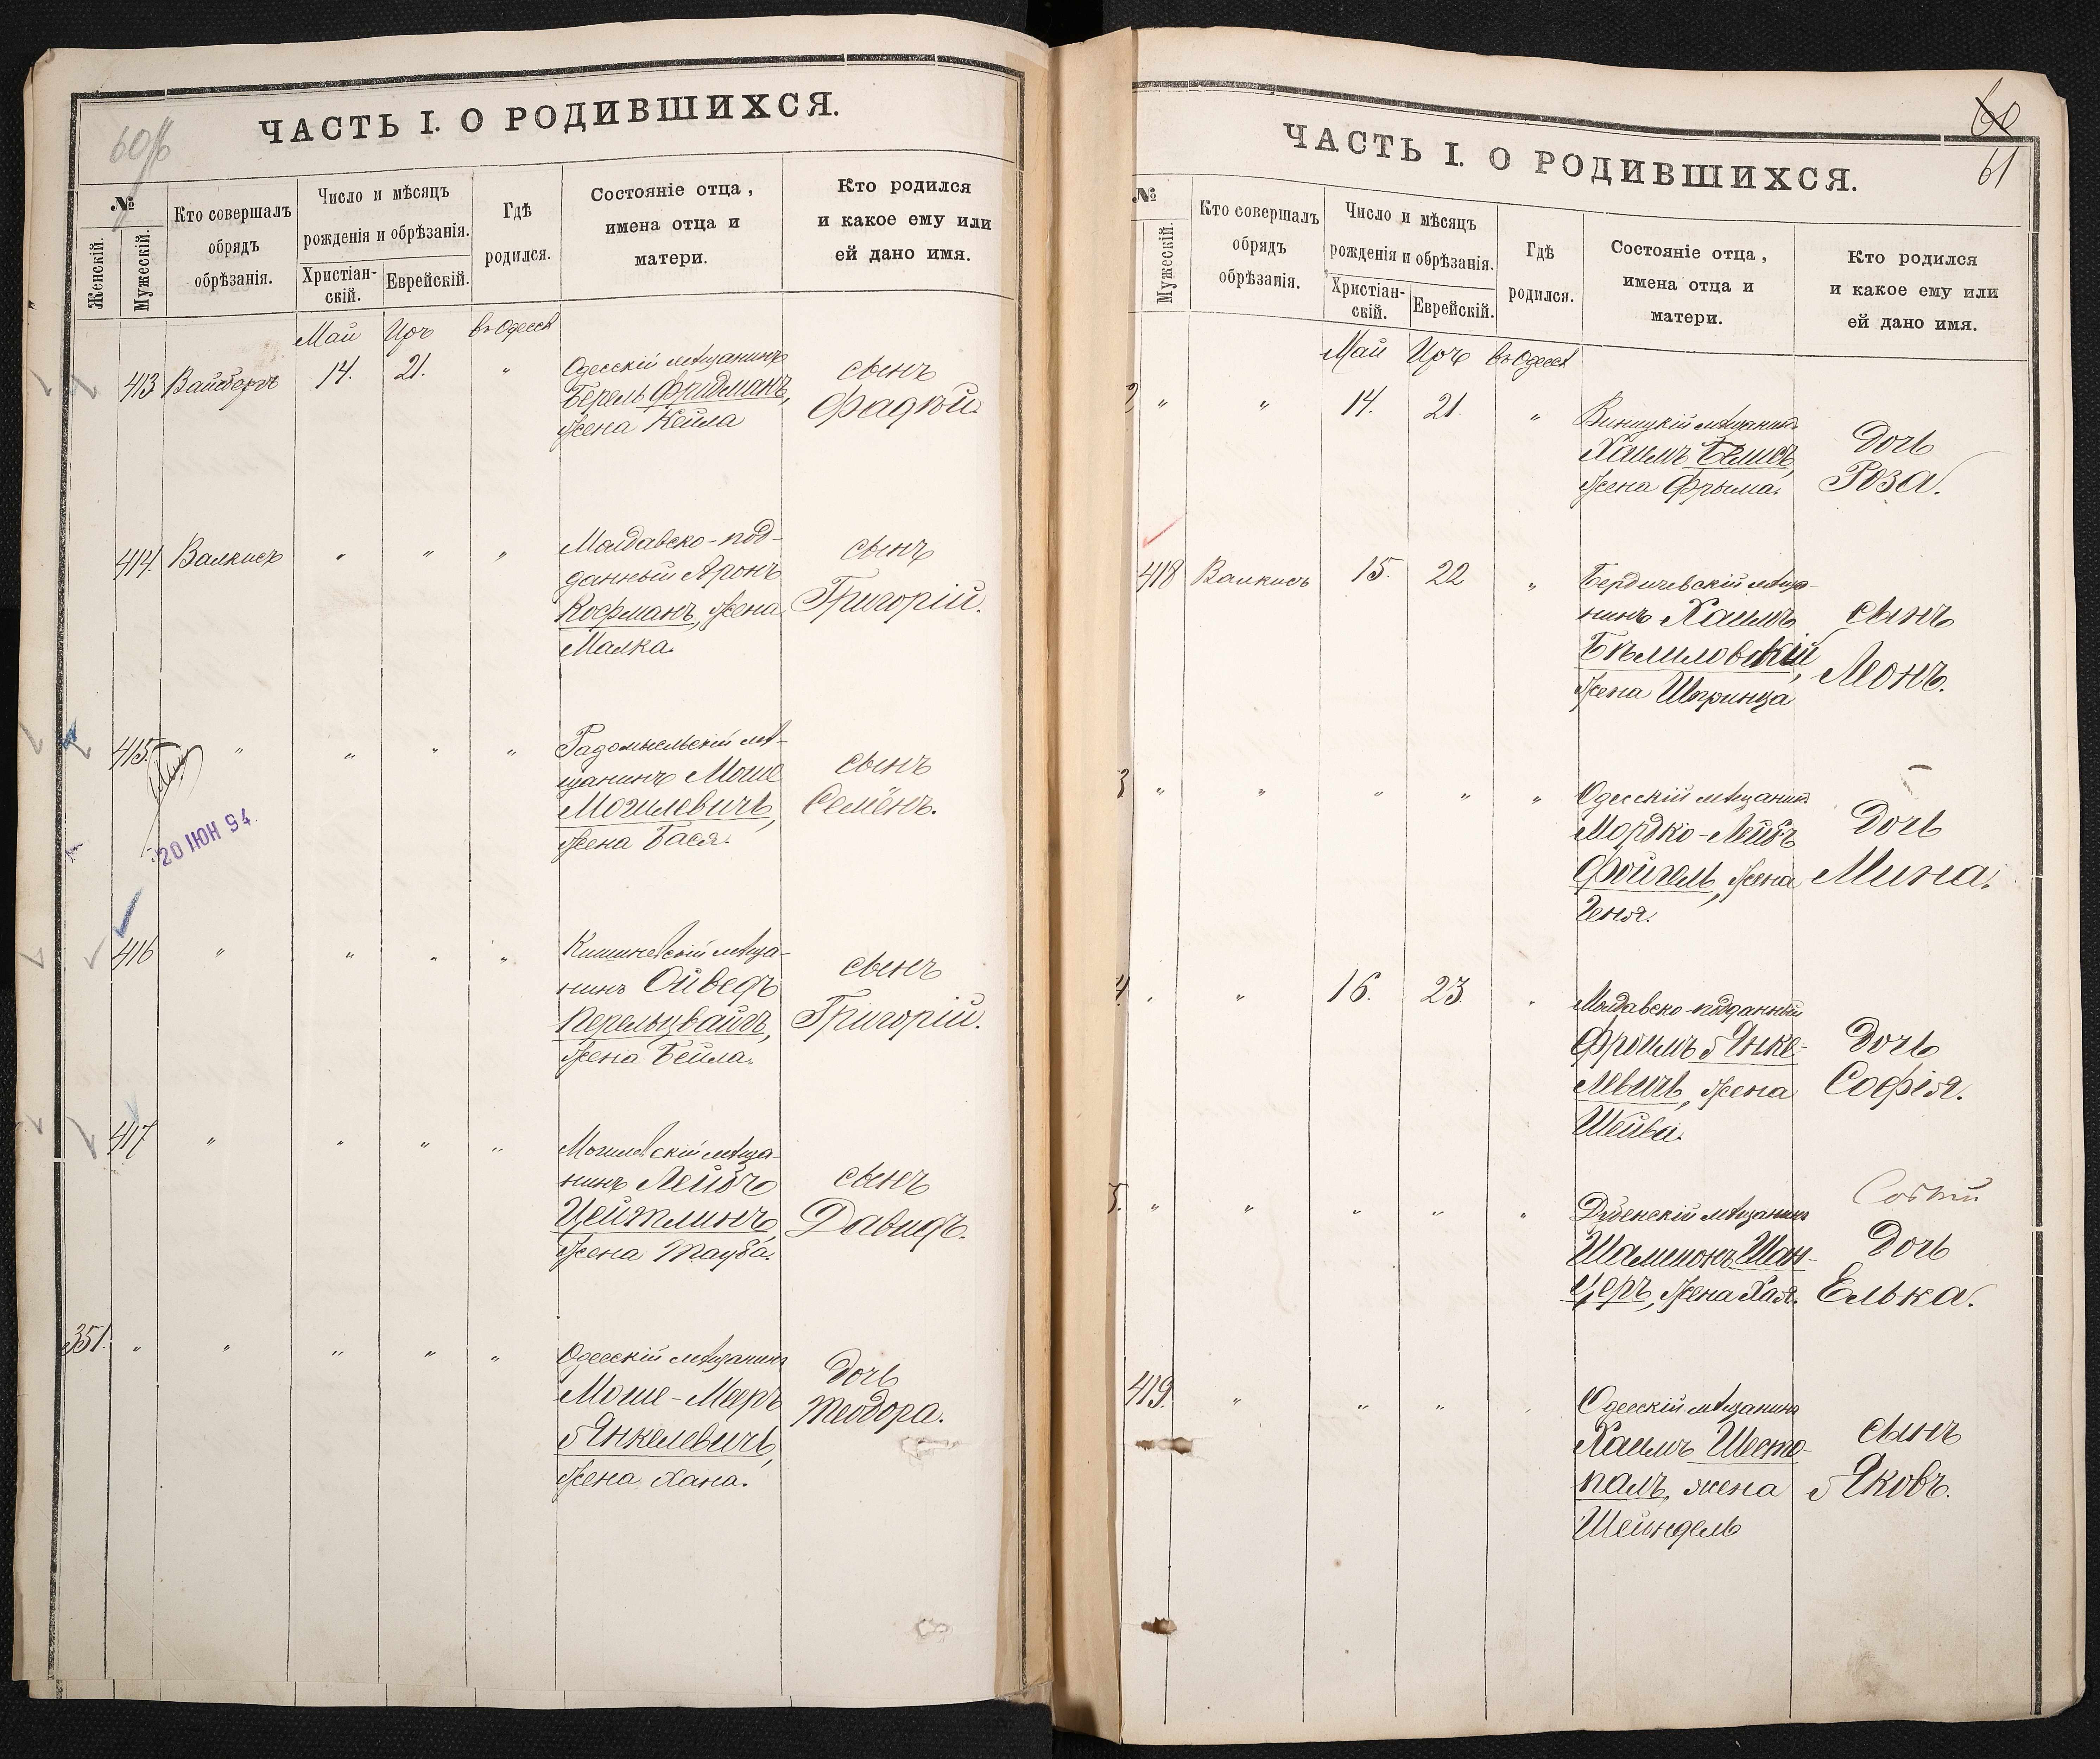 60/б
ЧАСТЬ I. О РОДИВШИХСЯ.
№
Женскій.
Мужескій.
Кто совершалъ
обрядъ
обрѣзанія.
Число и мѣсяцъ
рожденія и обрѣзанія.
Христіан-
скій.
Еврейскій.
Гдѣ
родился.
Состояніе отца,
имена отца и
матери.
Кто родился
и какое ему или
ей дано имя.
Май Иръ въ Одессѣ
413 Вайсбергъ 14. 21. "
Одесскій мѣщанинъ
Берель Фридманъ,
жена Кейла
сынъ
Фадѣй.
414. Валкисъ " " "
Молдавско-под-
данный Аронъ
Кофманъ, жена
Малка.
сынъ
Григорій.
415. " " " "
20 ИЮН 94.
Радомысльскій мѣ-
щанинъ Моше
Могилевичъ,
жена Бася.
сынъ
Семёнъ.
416 " " " "
Кишиневскій мѣща-
нинъ Ойведъ
Перельцвайгъ,
жена Бейла.
сынъ
Григорій.
417 " " " "
Могилевскій мѣща-
нинъ Лейбъ
Цейтлинъ,
жена Тауба.
сынъ
Давидъ.
351. " " " " "
Одесскій мѣщанинъ
Моше-Мееръ
Янкелевичъ,
жена Хана.
дочь
Теодора.
60
61
ЧАСТЬ I. О РОДИВШИХСЯ.
№
Мужескій.
Кто совершалъ
обрядъ
обрѣзанія.
Число и мѣсяцъ
рожденія и обрѣзанія.
Христіан-
скій.
Еврейскій.
Гдѣ
родился.
Состояніе отца,
имена отца и
матери.
Кто родился
и какое ему или
ей дано имя.
Май Иръ въ Одессѣ
2 " " 14. 21. "
Виницкій мѣщанинъ
Хаимъ Бѣлисъ,
жена Фрыма.
Дочь
Роза.
418 Валкисъ 15. 22 "
Бердичевскій мѣща-
нинъ Хаимъ
Бѣлиловскій,
жена Шпринца
сынъ
Леонъ.
3 " " " " "
Одесскій мѣщанинъ
Мордко-Лейбъ
Фойгель, жена
Геня.
Дочь
Мина.
4. " " 16. 23. "
Молдавско-подданный
Фроимъ Янке-
левичъ, жена
Шейва.
Дочь
Софія.
5. " " " " "
Дубенскій мѣщанинъ
Шамшонъ Шан-
церъ, жена Хая.
Дочь
Елька.
419. " " "
Одесскій мѣщанинъ
Хаимъ Шесто-
палъ, жена
Шейндель
сынъ
Яковъ.